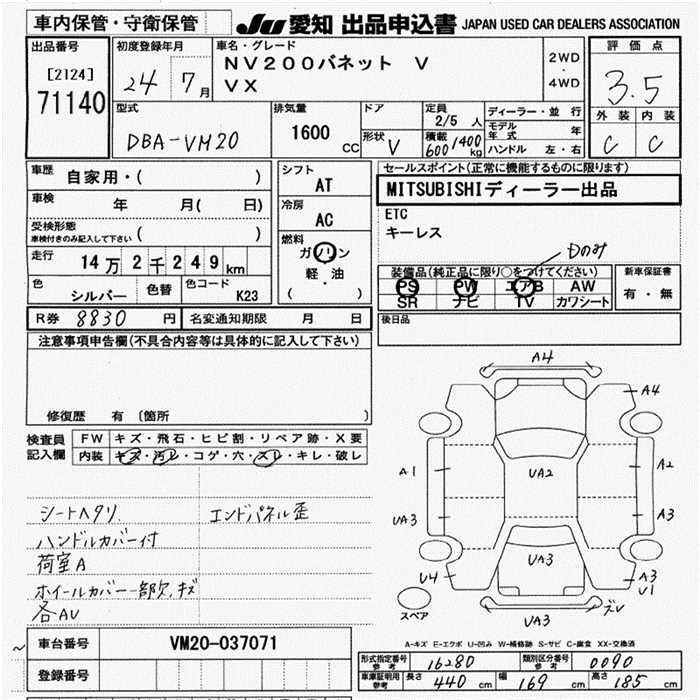 車内保管・守衛保管 JU 愛知 出品申込書 JAPAN USED CAR DEALERS ASSOCIATION
出品番号 初度登録年月 車名・グレード 評価点
[2124] 24 7月 NV200バネット V 2WD・4WD 3.5
71140 VX 外装 内装
型式 排気量 ドア 定員 2/5人 ディーラー・並行 C C
DBA-VM20 1600cc 形状 V 積載 600 1400kg モデル年式 年
ハンドル 左・右
車歴 自家用・( ) シフト AT セールスポイント(正常に機能するものに限ります)
車検 年 月( 日) 冷房 AC MITSUBISHIディーラー出品
受検形態 ( ) ETC
車検付きのみ記入して下さい 燃料 ガソリン キーレス
走行 14万2千249km 軽・油 Dのみ
色 シルバー 色替 色コード K23 ( ) 装備品(純品に限り○をつけてください) 新車保証書
PS PW エアB AW 有・無
SR ナビ TV カワシート
R券 8830円 名変通知期限 月 日 後日品
注意事項申告欄(不具合内容等は具体的に記入して下さい)
修復歴 有 (箇所 )
検査員 FW キズ・飛石・ヒビ割・リペア跡・X要
記入欄 内装 キズ・汚レ・コゲ・穴・スレ・キレ・破レ
シートヘタリ エンドパネル歪
ハンドルカバー付
荷室A
ホイールカバー一部欠,キズ
各AU
A4
A4
A1 UA2 A2
UA3 A3
UA3
U4 A3
U1
スペア UA3
A-キズ E-エクボ U-凹み W-補修跡 S-サビ C-腐食 XX-交換済
車台番号 VM20-037071
登録番号
形式指定番号 参考 16280 類別区分番号 参考 0090
車庫証明用 参考 長さ 440cm 幅 169cm 高さ 185cm